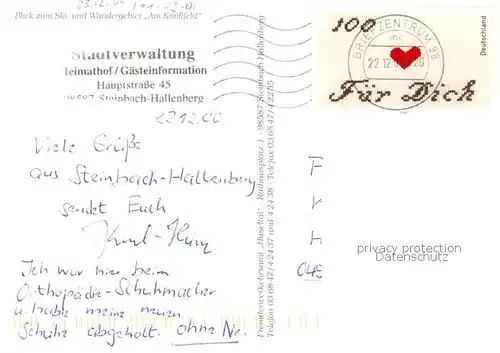 Blick zum Ski- und Wandergebiet "Am Knüllfeld"
Stadtverwaltung
Heimathof / Gästeinformation
Hauptstraße 45
Steinbach-Hallenberg
22.12.00
Viele Grüße
aus Steinbach-Hallenberg
sendet Euch
Ich war hier beim
Orthopädie-Schuhmacher
u. habe meine neuen
Schuhe abgeholt. ohne Nr.
Fremdenverkehrsamt "Haseltal" · Rathausplatz 1 · 98587 Steinbach-Hallenberg
Telefon 036847/42437 und 42438 · Telefax 036847/42235
100
Deutschland
BRIEFZENTRUM 98
mc
22.12
20
Für Dich
privacy protection
Datenschutz